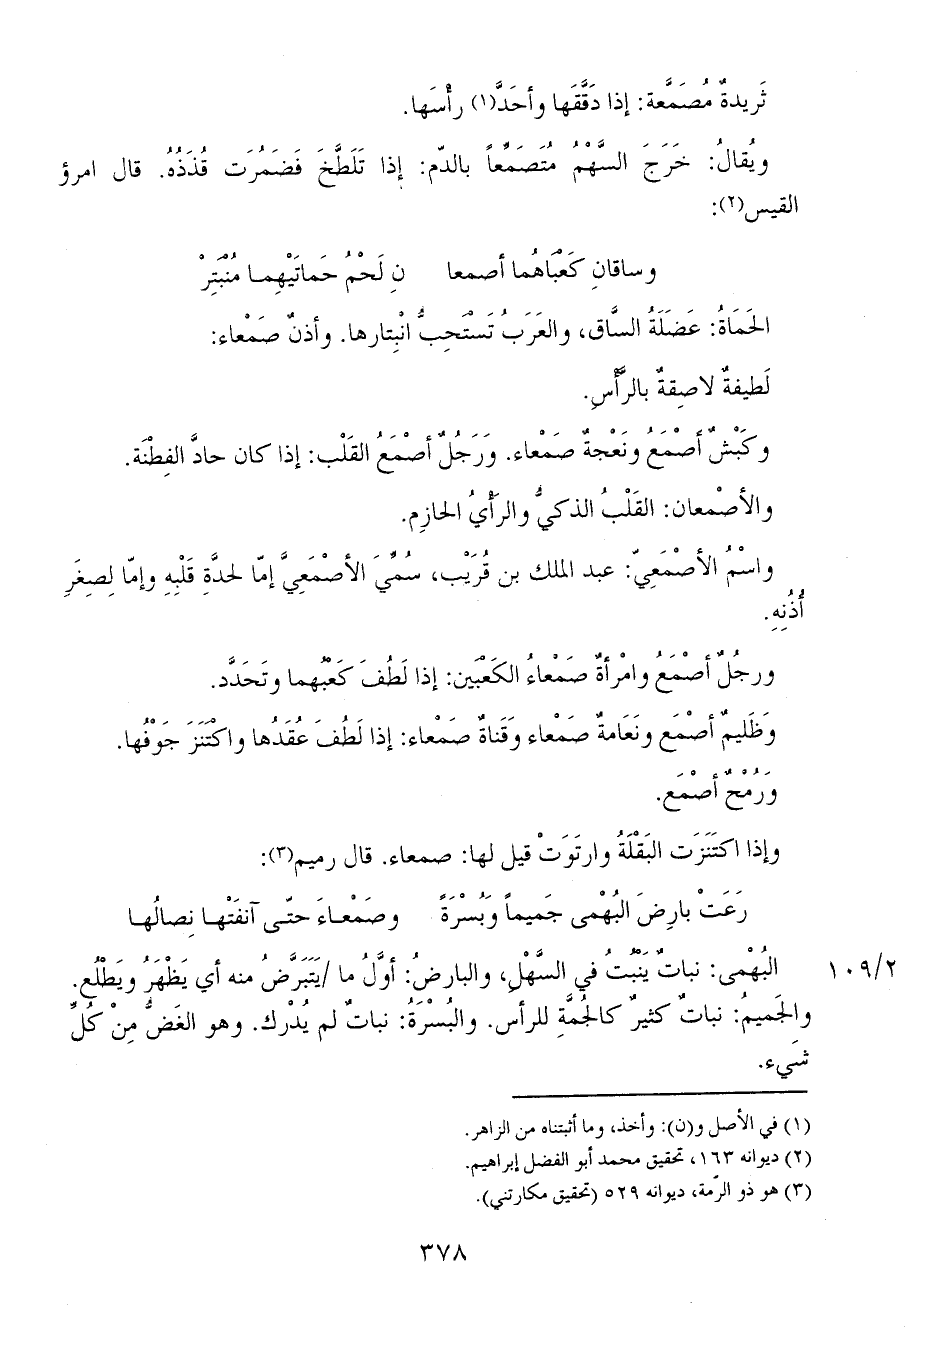 ثَريدةٌ مُصَمَّعة: إذا دَقَّقَها وأحَدَّ(١) رأْسَها.
ويُقالُ: خَرَجَ السَّهْمُ مُتَصَمِّعاً بالدّم: إذا تَلَطَّخَ فَضَمُرَت قُذَذُهُ. قال امرؤ
القيس(٢):
وساقانِ كَعْبَاهُما أصمعا نِ لَحْمُ حَماتَيْهِما مُنْبَتِرْ
الحَمَاةُ: عَضَلَةُ السَّاق، والعَرَبُ تَسْتَحِبُّ انْبِتارها. وأذنٌ صَمْعاء:
لَطيفةٌ لاصِقةٌ بالرَّأْسِ.
وكَبْشٌ أصْمَعُ ونَعْجةٌ صَمْعاء. ورَجُلٌ أصْمَعُ القَلْب: إذا كان حادَّ الفِطْنَة.
والأصْمعان: القَلْبُ الذكيُّ والرَأْيُ الحازِم.
واسْمُ الأصْمَعِيّ: عبد الملك بن قُرَيْب، سُمِّيَ الأصْمَعِيَّ إمّا لحدَّةِ قَلْبِهِ وإمّا لِصِغَرِ
أُذُنِهِ.
ورجُلٌ أصْمَعُ وامْرأةٌ صَمْعاءُ الكَعْبَين: إذا لَطُفَ كَعْبُهما وتَحَدَّد.
وَظَليمٌ أصْمَع ونَعَامةٌ صَمْعاء وقَناةٌ صَمْعاء: إذا لَطُفَ عُقَدُها واكْتَنَزَ جَوْفُها.
ورُمْحٌ أصْمَع.
وإذا اكتَنَزَت البَقْلَةُ وارتَوَتْ قيل لها: صمعاء. قال رميم(٣):
رَعَتْ بارِضَ البُهْمى جَميماً وَبُسْرَةً وصَمْعاءَ حتّى آنفَتْها نِصالُها
البُهْمى: نباتٌ يَنْبُتُ في السَّهْلِ، والبارضُ: أوَّلُ ما /يَتَبَرَّضُ منه أي يَظْهَرُ ويَطْلُع. ١٠٩/٢
والجَميمُ: نباتٌ كثيرٌ كالجُمَّةِ للرأس. والبُسْرَةُ: نباتٌ لم يُدْرك. وهو الغَضُّ مِنْ كُلِّ
شَيء.
(١) في الأصل و(ن): وأخذ، وما أثبتناه من الزاهر.
(٢) ديوانه ١٦٣، تحقيق محمد أبو الفضل إبراهيم.
(٣) هو ذو الرّمة، ديوانه ٥٢٩ (تحقيق مكارتني).
٣٧٨